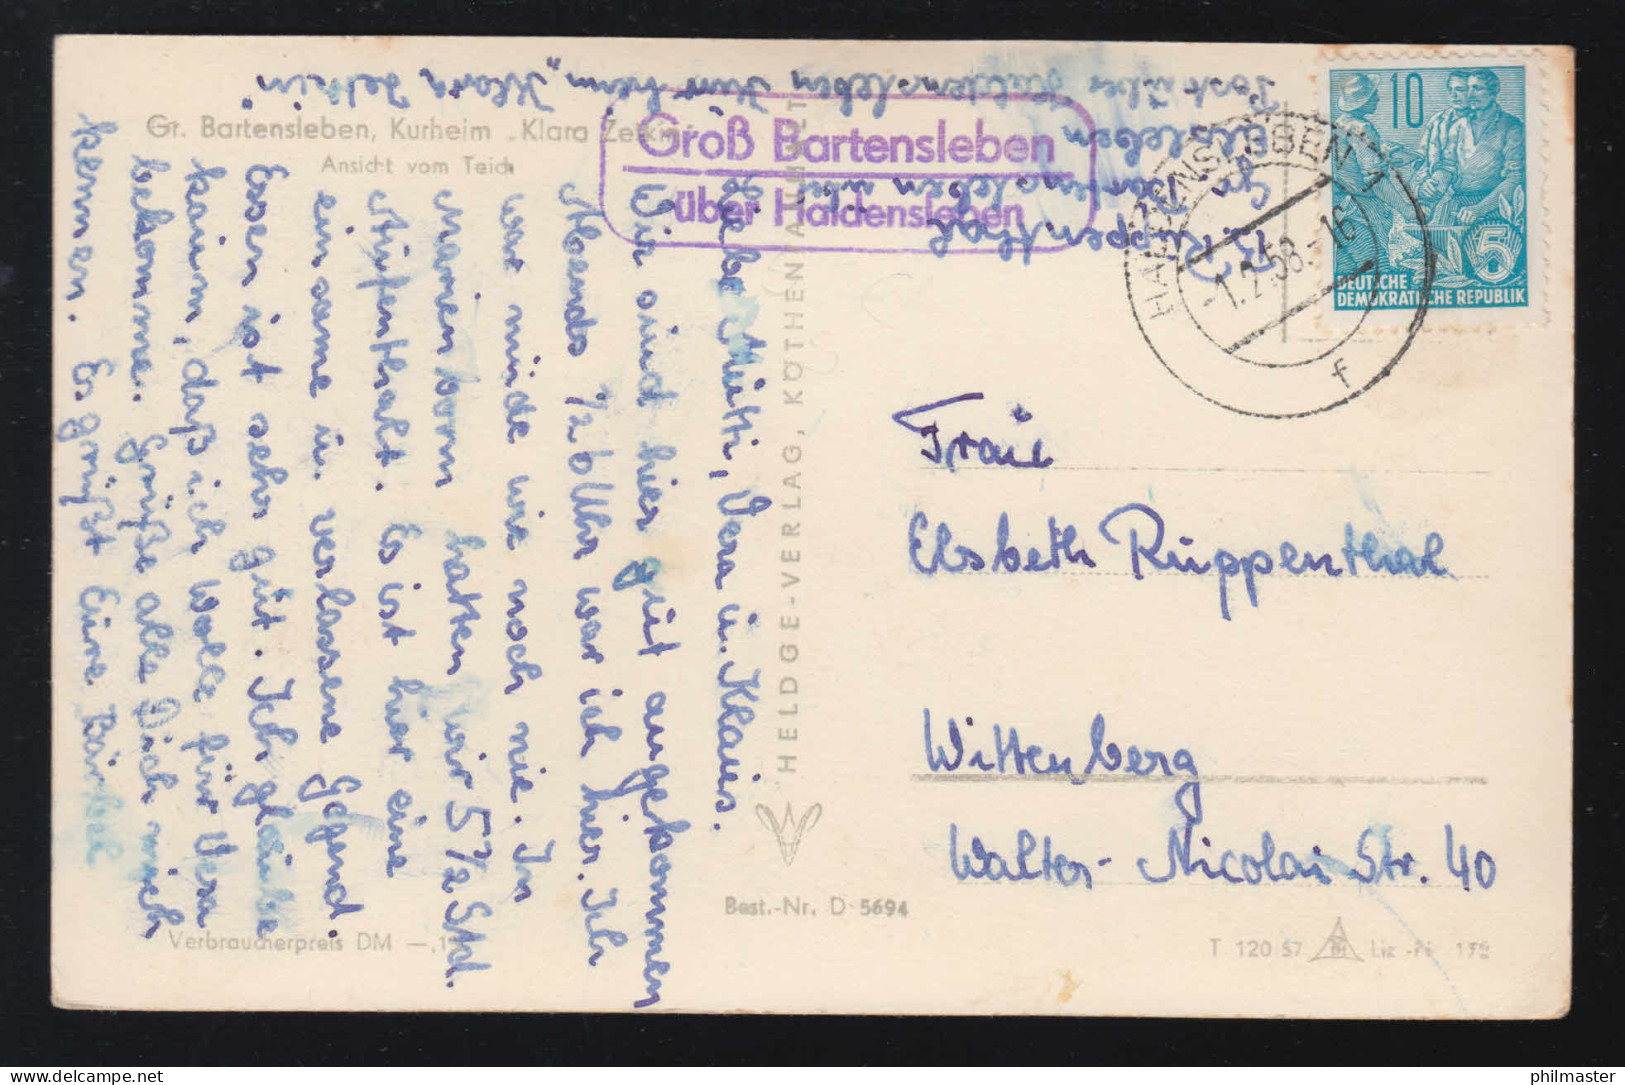 Gr. Bartensleben, Kurheim „Klara Zetkin“
Ansicht vom Teich
Groß Bartensleben
über Haldensleben
Post über Haldensleben Kurheim „Klara Zetkin“
B. Ruppenthal
Gr. Bartensleben
HALDENSLEBEN 1
-1.2.58.-16
f
10
5
DEUTSCHE
DEMOKRATISCHE REPUBLIK
Liebe Mutti, Vera u. Klaus.
Wir sind hier gut angekommen
Abends ½6 Uhr war ich hier. Ich
war müde wie noch nie. In
Marienborn hatten wir 5½ Std.
Aufenthalt. Es ist hier eine
einsame u. verlassene Gegend.
Essen ist sehr gut. Ich glaube
kaum, daß ich Wolle für Vera
bekomme. Grüße alle Dich mich
kennen. Es grüßt Eure Bärbel
HELDGE-VERLAG, KÖTHEN/ANHALT
Frau
Elsbeth Ruppenthal
Wittenberg
Walter-Nicolai Str. 40
Best.-Nr. D 5694
Verbraucherpreis DM —,
T 120/57
Liz.-Nr.
philmaster